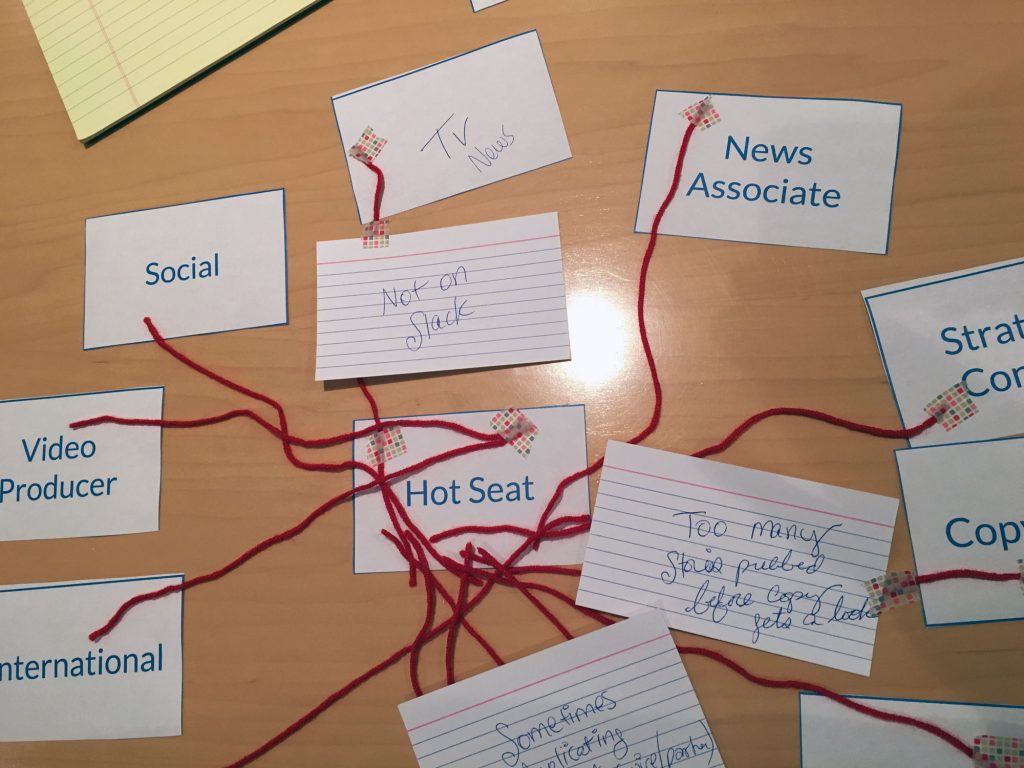 TV
News
News
Associate
Social
Not on
Slack
Strat
Con
Video
Producer
Hot Seat
Too many
before copy
gets a look
Copy
nternational
Sometimes